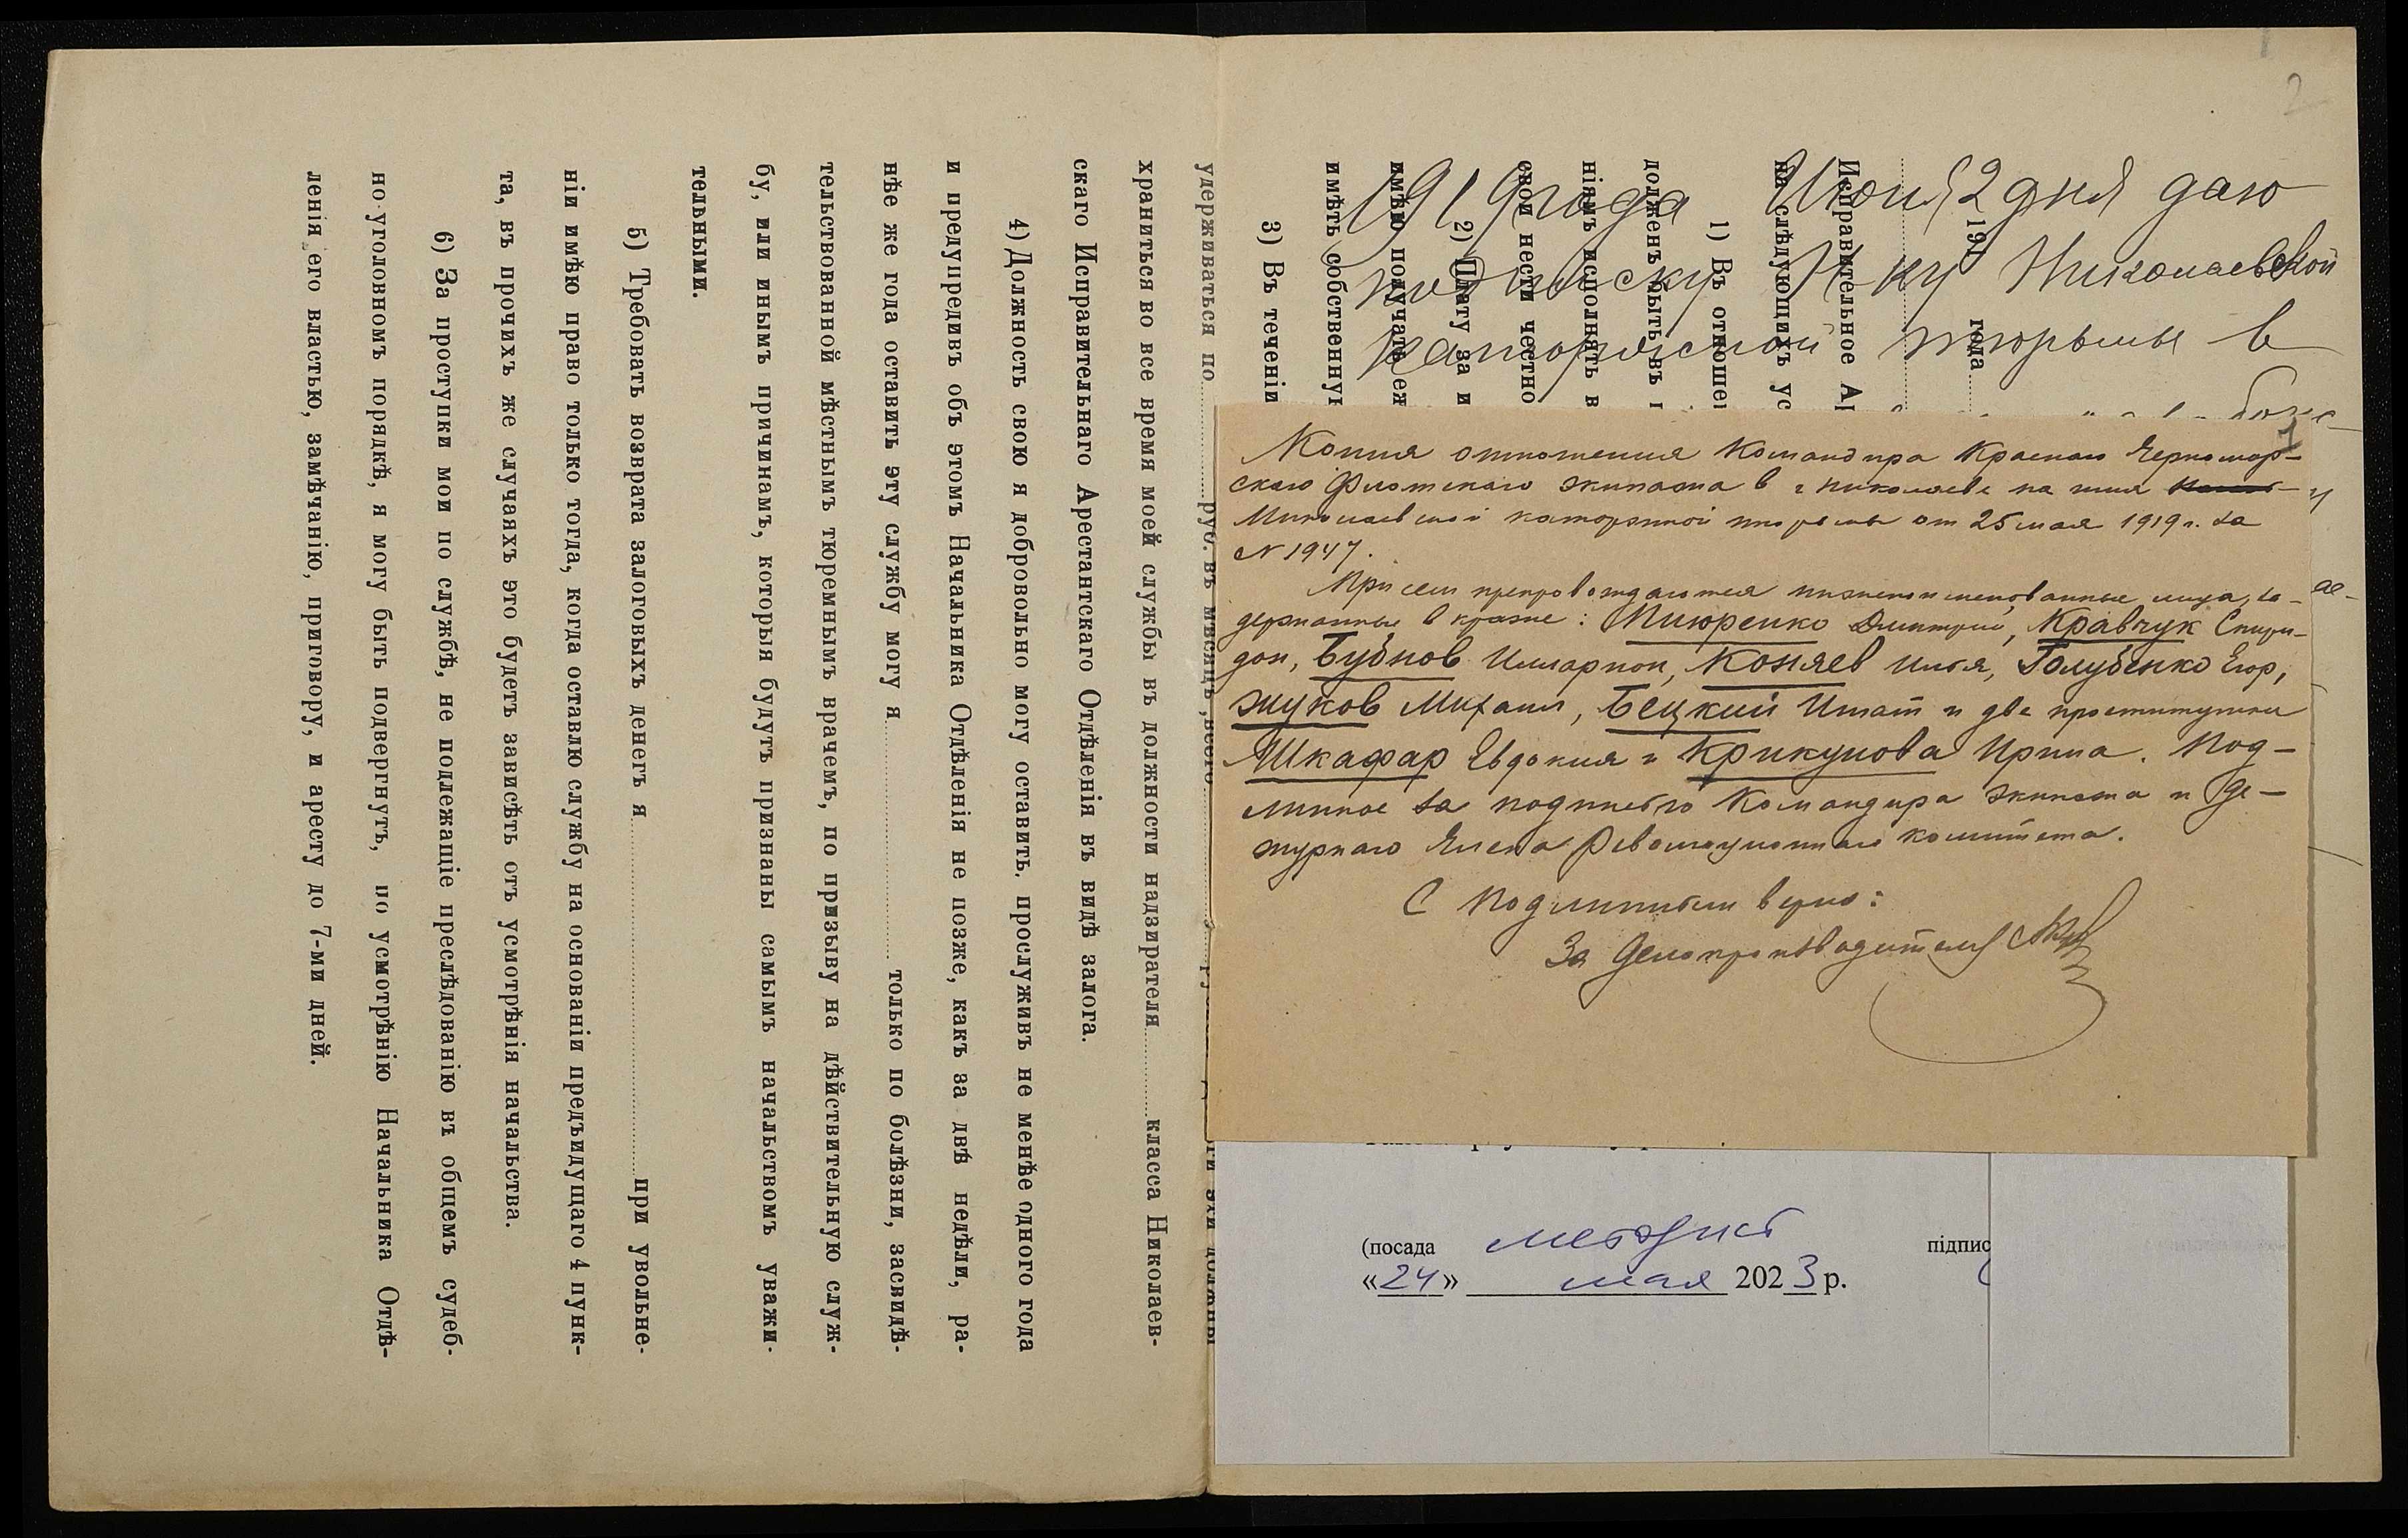 удерживаться по
руб. въ мѣсяцъ, всего
храниться во все время моей службы въ должности надзирателя класса Николаев-
скаго Исправительнаго Арестантскаго Отдѣленія въ видѣ залога.
4) Должность свою я добровольно могу оставить, прослуживъ не менѣе одного года
и предупредивъ объ этомъ Начальника Отдѣленія не позже, какъ за двѣ недѣли, ра-
нѣе же года оставить эту службу могу я только по болѣзни, засвидѣ-
тельствованной мѣстнымъ тюремнымъ врачемъ, по призыву на дѣйствительную служ-
бу, или инымъ причинамъ, которыя будутъ признаны самымъ начальствомъ уважи-
тельными.
5) Требовать возврата залоговыхъ денегъ я при увольне-
ніи имѣю право только тогда, когда оставлю службу на основаніи предъидущаго 4 пунк-
та, въ прочихъ же случаяхъ это будетъ зависѣть отъ усмотрѣнія начальства.
6) За проступки мои по службѣ, не подлежащіе преслѣдованію въ общемъ судеб-
но-уголовномъ порядкѣ, я могу быть подвергнутъ, по усмотрѣнію Начальника Отдѣ-
ленія его властью, замѣчанію, приговору, и аресту до 7-ми дней.
2
191 года
Исправительное Ар
на слѣдующихъ ус
1) Въ отношен
долженъ быть въ п
ніямъ исполнять в
свои нести честно
2) Плату за и
имѣю получать еж
имѣть собственну
3) Въ теченіи
1919 года Июня 2 дня даю
подписку Н-ку Николаевской
каторжной тюрьмы в
1
Копия отношения Командира Красного Черномор-
скаго Флотскаго экипажа в г Николаеве на имя
Николаевской каторжной тюрьмы от 25 мая 1919 г. за
№ 1947.
При сем препровождаются нижепоименованные лица, за-
держанные в краже: Тиюренко Дмитрий, Кравчук Спири-
дон, Бубнов Илларион, Коняев Илья, Голубенко Егор,
Жуков Михаил, Бецкий Игнат и две проститутки
Шкафар Евдокия и Крикунова Ирина. Под-
линное за подписью Командира экипажа и де-
журнаго Члена Революционнаго комитета.
С подлинным верно:
За Делопроизводителя
(посада методист підпис
«24» мая 2023 р.